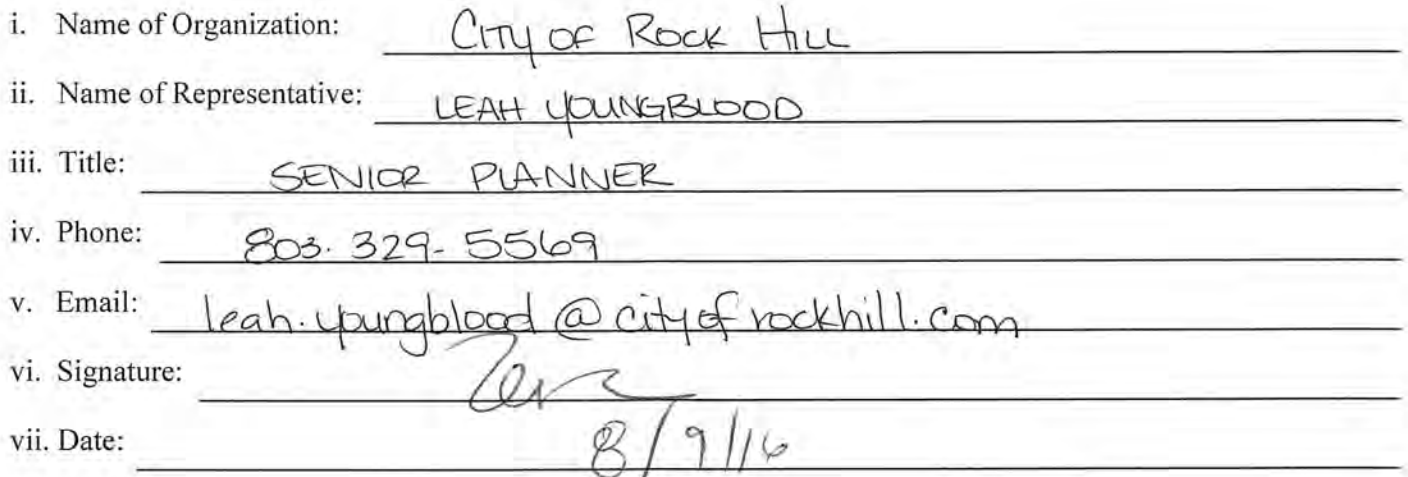 i. Name of Organization: CITY OF ROCK HILL
ii. Name of Representative: LEAH YOUNGBLOOD
iii. Title: SENIOR PLANNER
iv. Phone: 803. 329-5569
v. Email: leah.youngblood@cityofrockhill.com
vi. Signature:
vii. Date: 8/9/16